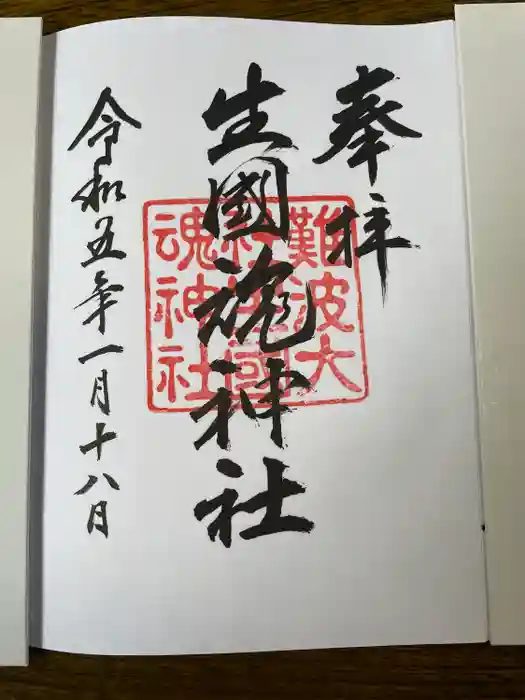 奉拝
生國魂神社
令和五年一月十八日
難波大
社生國
魂神社